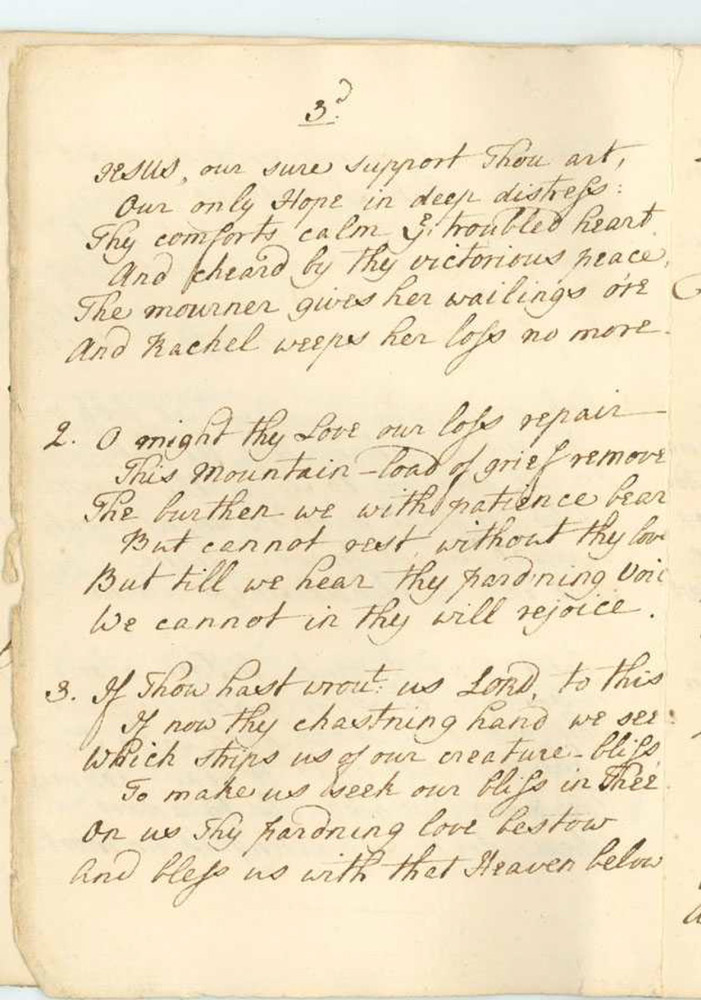 3d.
JESUS, our sure support Thou art,
Our only Hope in deep distress:
Thy comforts calm ye troubled heart
And cheard by thy victorious peace,
The mourner gives her wailings o're
And Rachel weeps her loss no more.
2. O might thy Love our loss repair
This Mountain-load of grief remove
The burthen we with patience bear
But cannot rest without thy lov
But till we hear thy pard'ning Voic
We cannot in thy will rejoice.
3. If Thou hast wrout: us LORD, to this
If now thy chastning hand we see:
Which strips us of our creature-bliss
To make us seek our bliss in Thee
On us Thy pardning love bestow
And bless us with that Heaven below